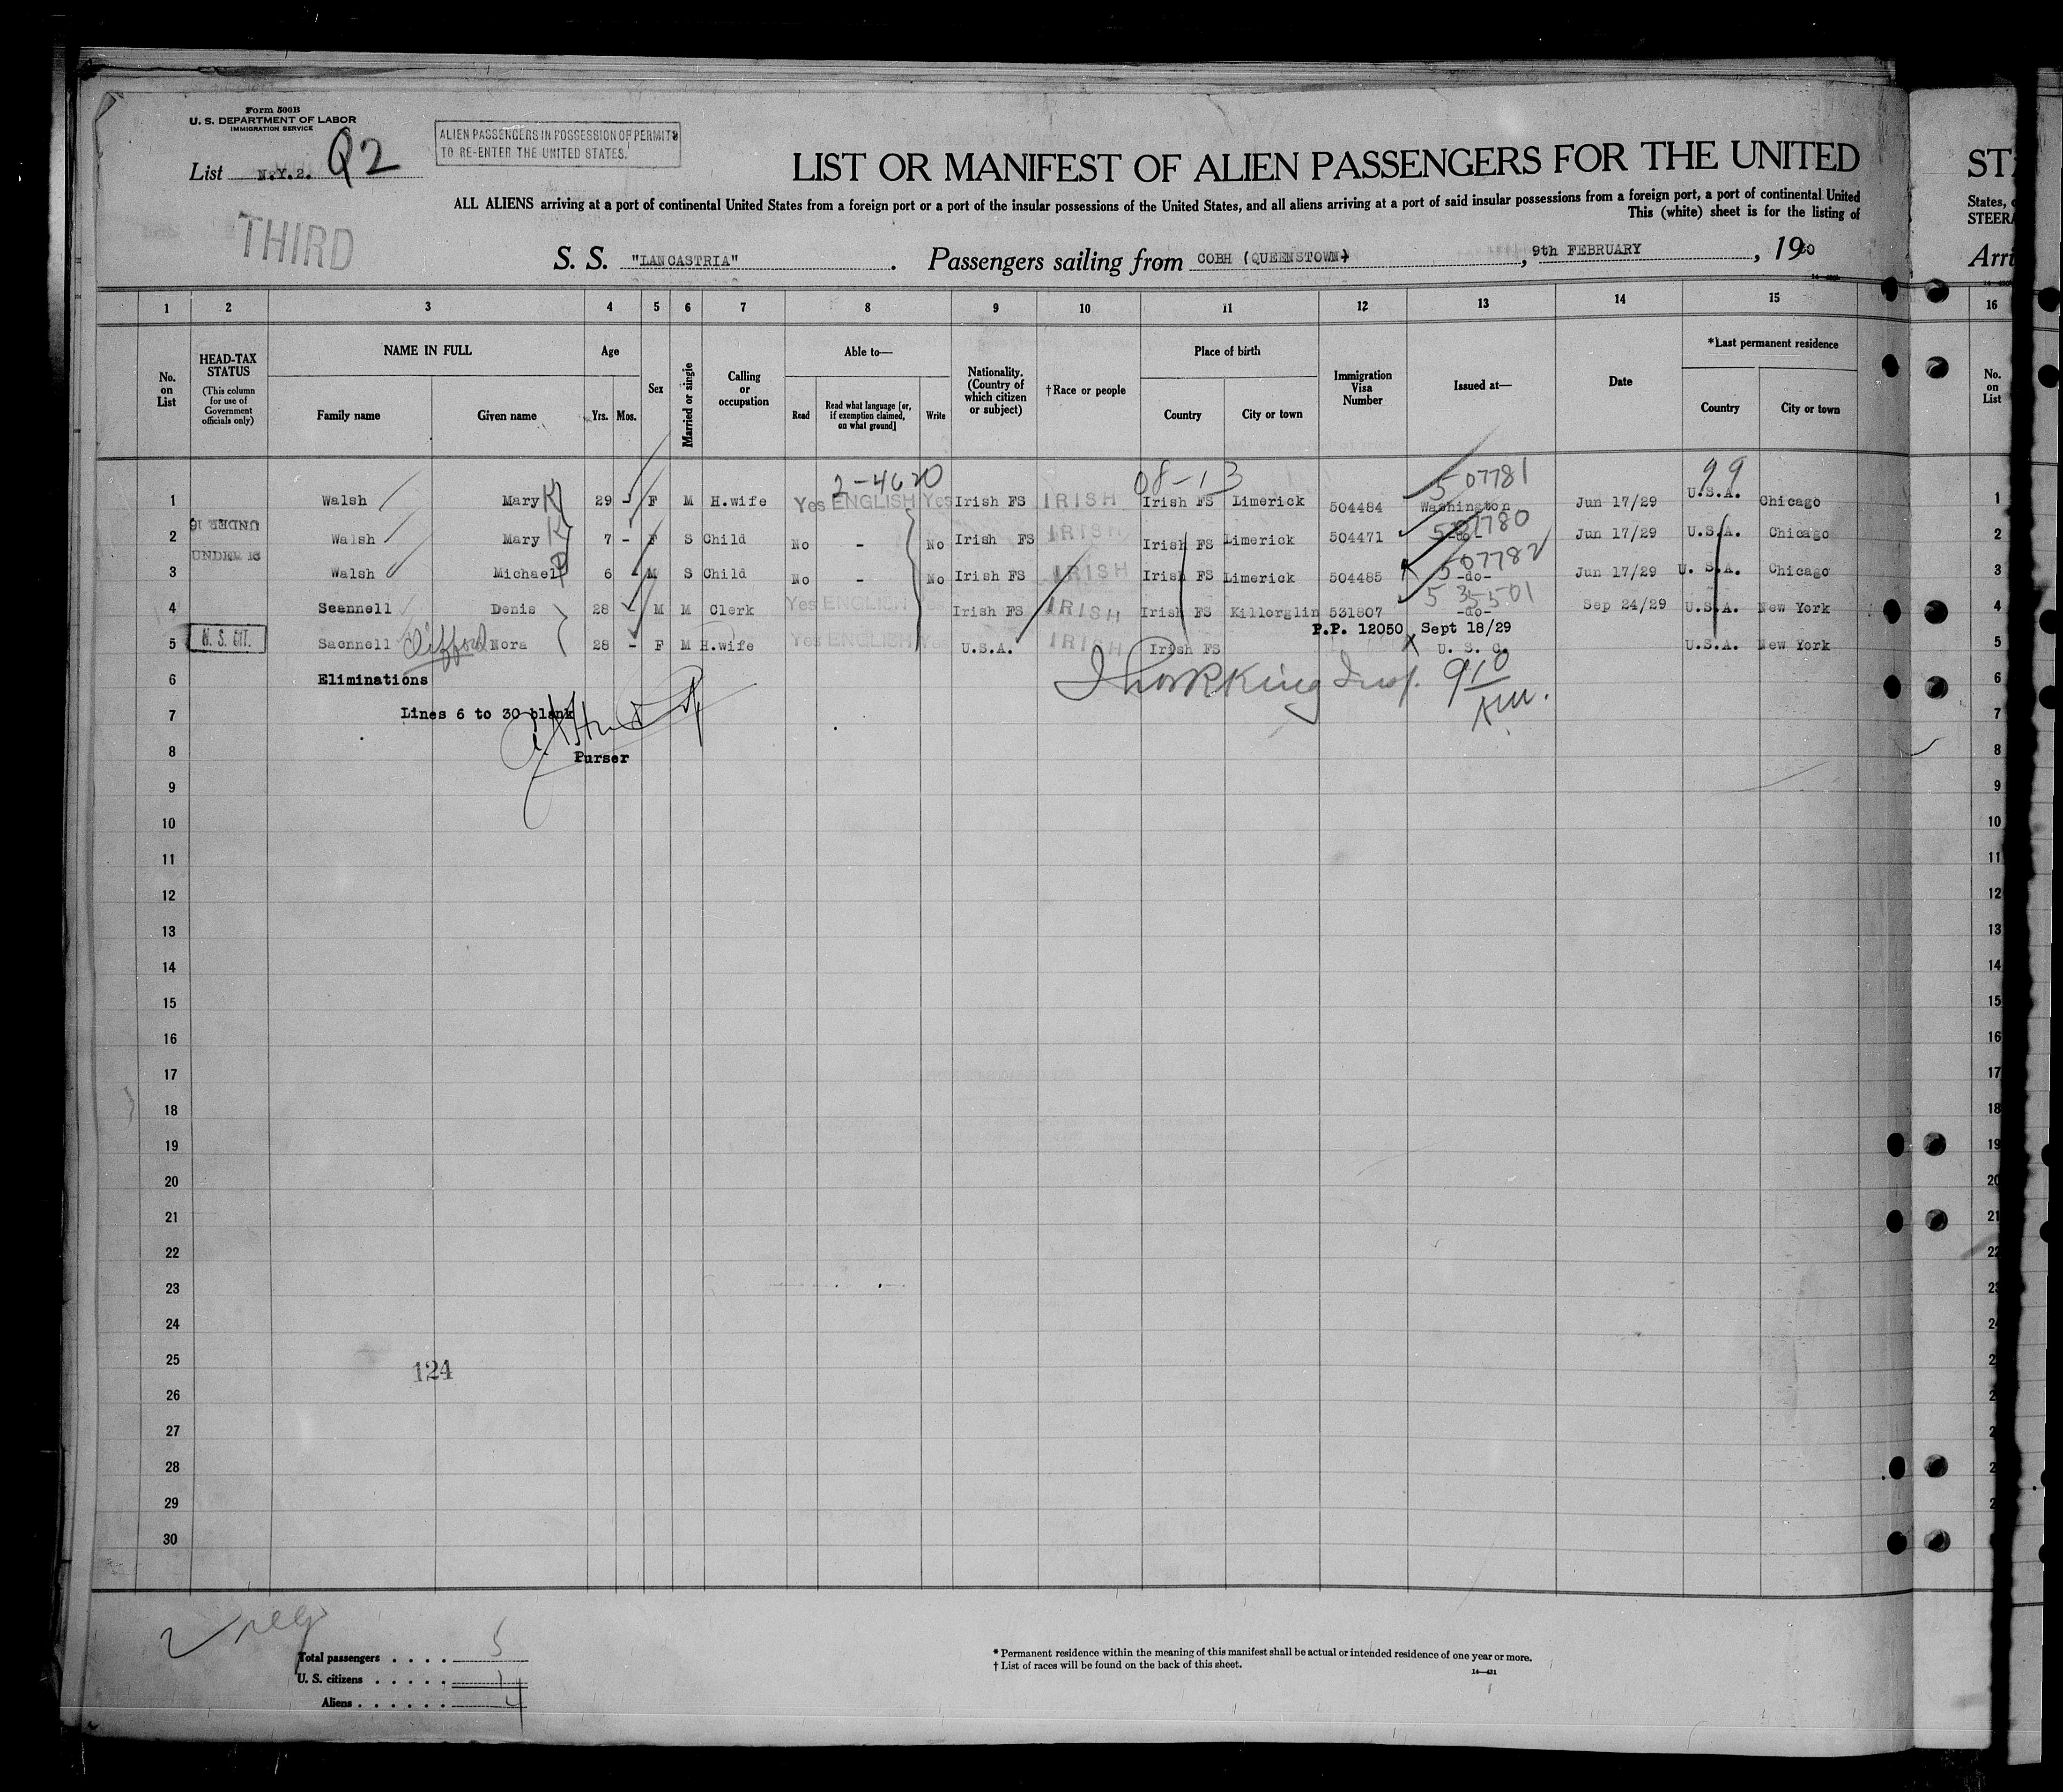 Form 500B
U. S. DEPARTMENT OF LABOR
IMMIGRATION SERVICE
List N.Y.2. Q2
ALIEN PASSENGERS IN POSSESSION OF PERMITS
TO RE-ENTER THE UNITED STATES.
THIRD
LIST OR MANIFEST OF ALIEN PASSENGERS FOR THE UNITED
ALL ALIENS arriving at a port of continental United States from a foreign port or a port of the insular possessions of the United States, and all aliens arriving at a port of said insular possessions from a foreign port, a port of continental United
This (white) sheet is for the listing of
S. S. "LANCASTRIA". Passengers sailing from COBH (QUEENSTOWN), 9th FEBRUARY, 1930
ST
States,
STEERA
Arri
1 2 3 4 5 6 7 8 9 10 11 12 13 14 15 16
No. on List
HEAD-TAX STATUS
(This column for use of Government officials only)
NAME IN FULL
Family name Given name
Age
Yrs. Mos.
Sex
Married or single
Calling or occupation
Able to—
Read
Read what language [or, if exemption claimed, on what ground]
Write
Nationality. (Country of which citizen or subject)
†Race or people
Place of birth
Country City or town
Immigration Visa Number
Issued at—
Date
*Last permanent residence
Country City or town
No. on List
2-4620 08-13 507781 99
1 Walsh Mary K 29 - F M H.wife Yes ENGLISH Yes Irish FS IRISH Irish FS Limerick 504484 Washington Jun 17/29 U.S.A. Chicago 1
UNDER 16
2 Walsh Mary K 7 - F S Child No - No Irish FS IRISH Irish FS Limerick 504471 Jun 17/29 U.S.A. Chicago 2
UNDER 16 507782
3 Walsh Michael P 6 - M S Child No - No Irish FS IRISH Irish FS Limerick 504485 -do- Jun 17/29 U. S.A. Chicago 3
535501
4 Scannell Denis 28 - M M Clerk Yes ENGLISH Yes Irish FS IRISH Irish FS Killorglin 531807 -do- Sep 24/29 U.S.A. New York 4
P.P. 12050 Sept 18/29
5 N. S. CIT. Saonnell Clifford Nora 28 - F M H.wife Yes ENGLISH Yes U.S.A. IRISH Irish FS U. S. C. U.S.A. New York 5
6 Eliminations King Insp. 6
7 Lines 6 to 30 blank 7
8 Purser 8
9 9
10 10
11 11
12 12
13 13
14 14
15 15
16 16
17 17
18 18
19 19
20 20
21 21
22 22
23 23
24 24
25 124 2
26 2
27 2
28 2
29 2
30
Total passengers . . . . 5
U. S. citizens . . . . . 1
Aliens . . . . . . 4
* Permanent residence within the meaning of this manifest shall be actual or intended residence of one year or more.
† List of races will be found on the back of this sheet.
14—431